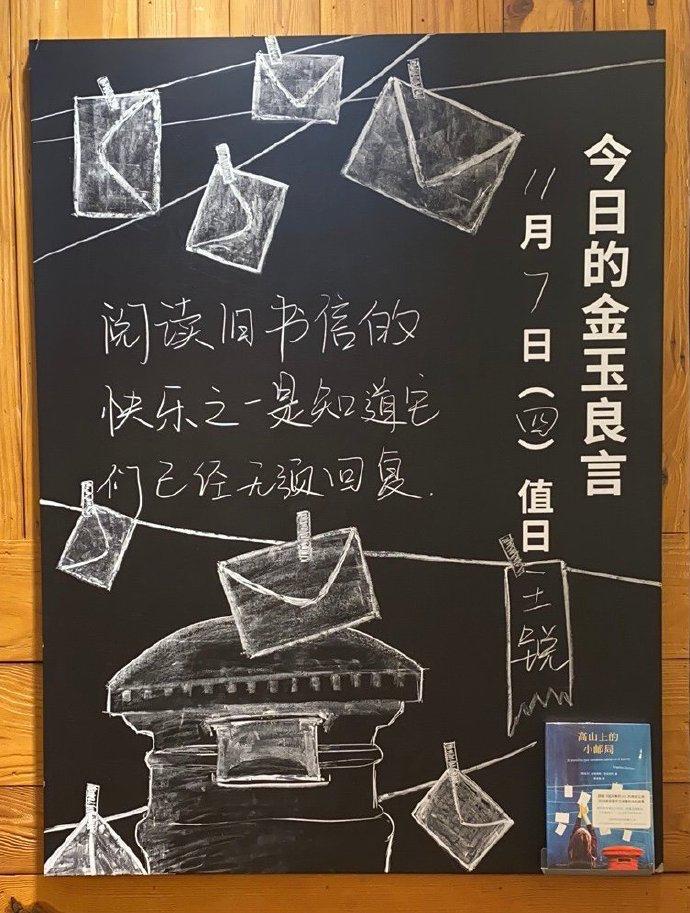 今日的金玉良言
11月7日(四)值日
阅读旧书信的
快乐之一是知道它
们已经无须回复.
高山上的
小邮局